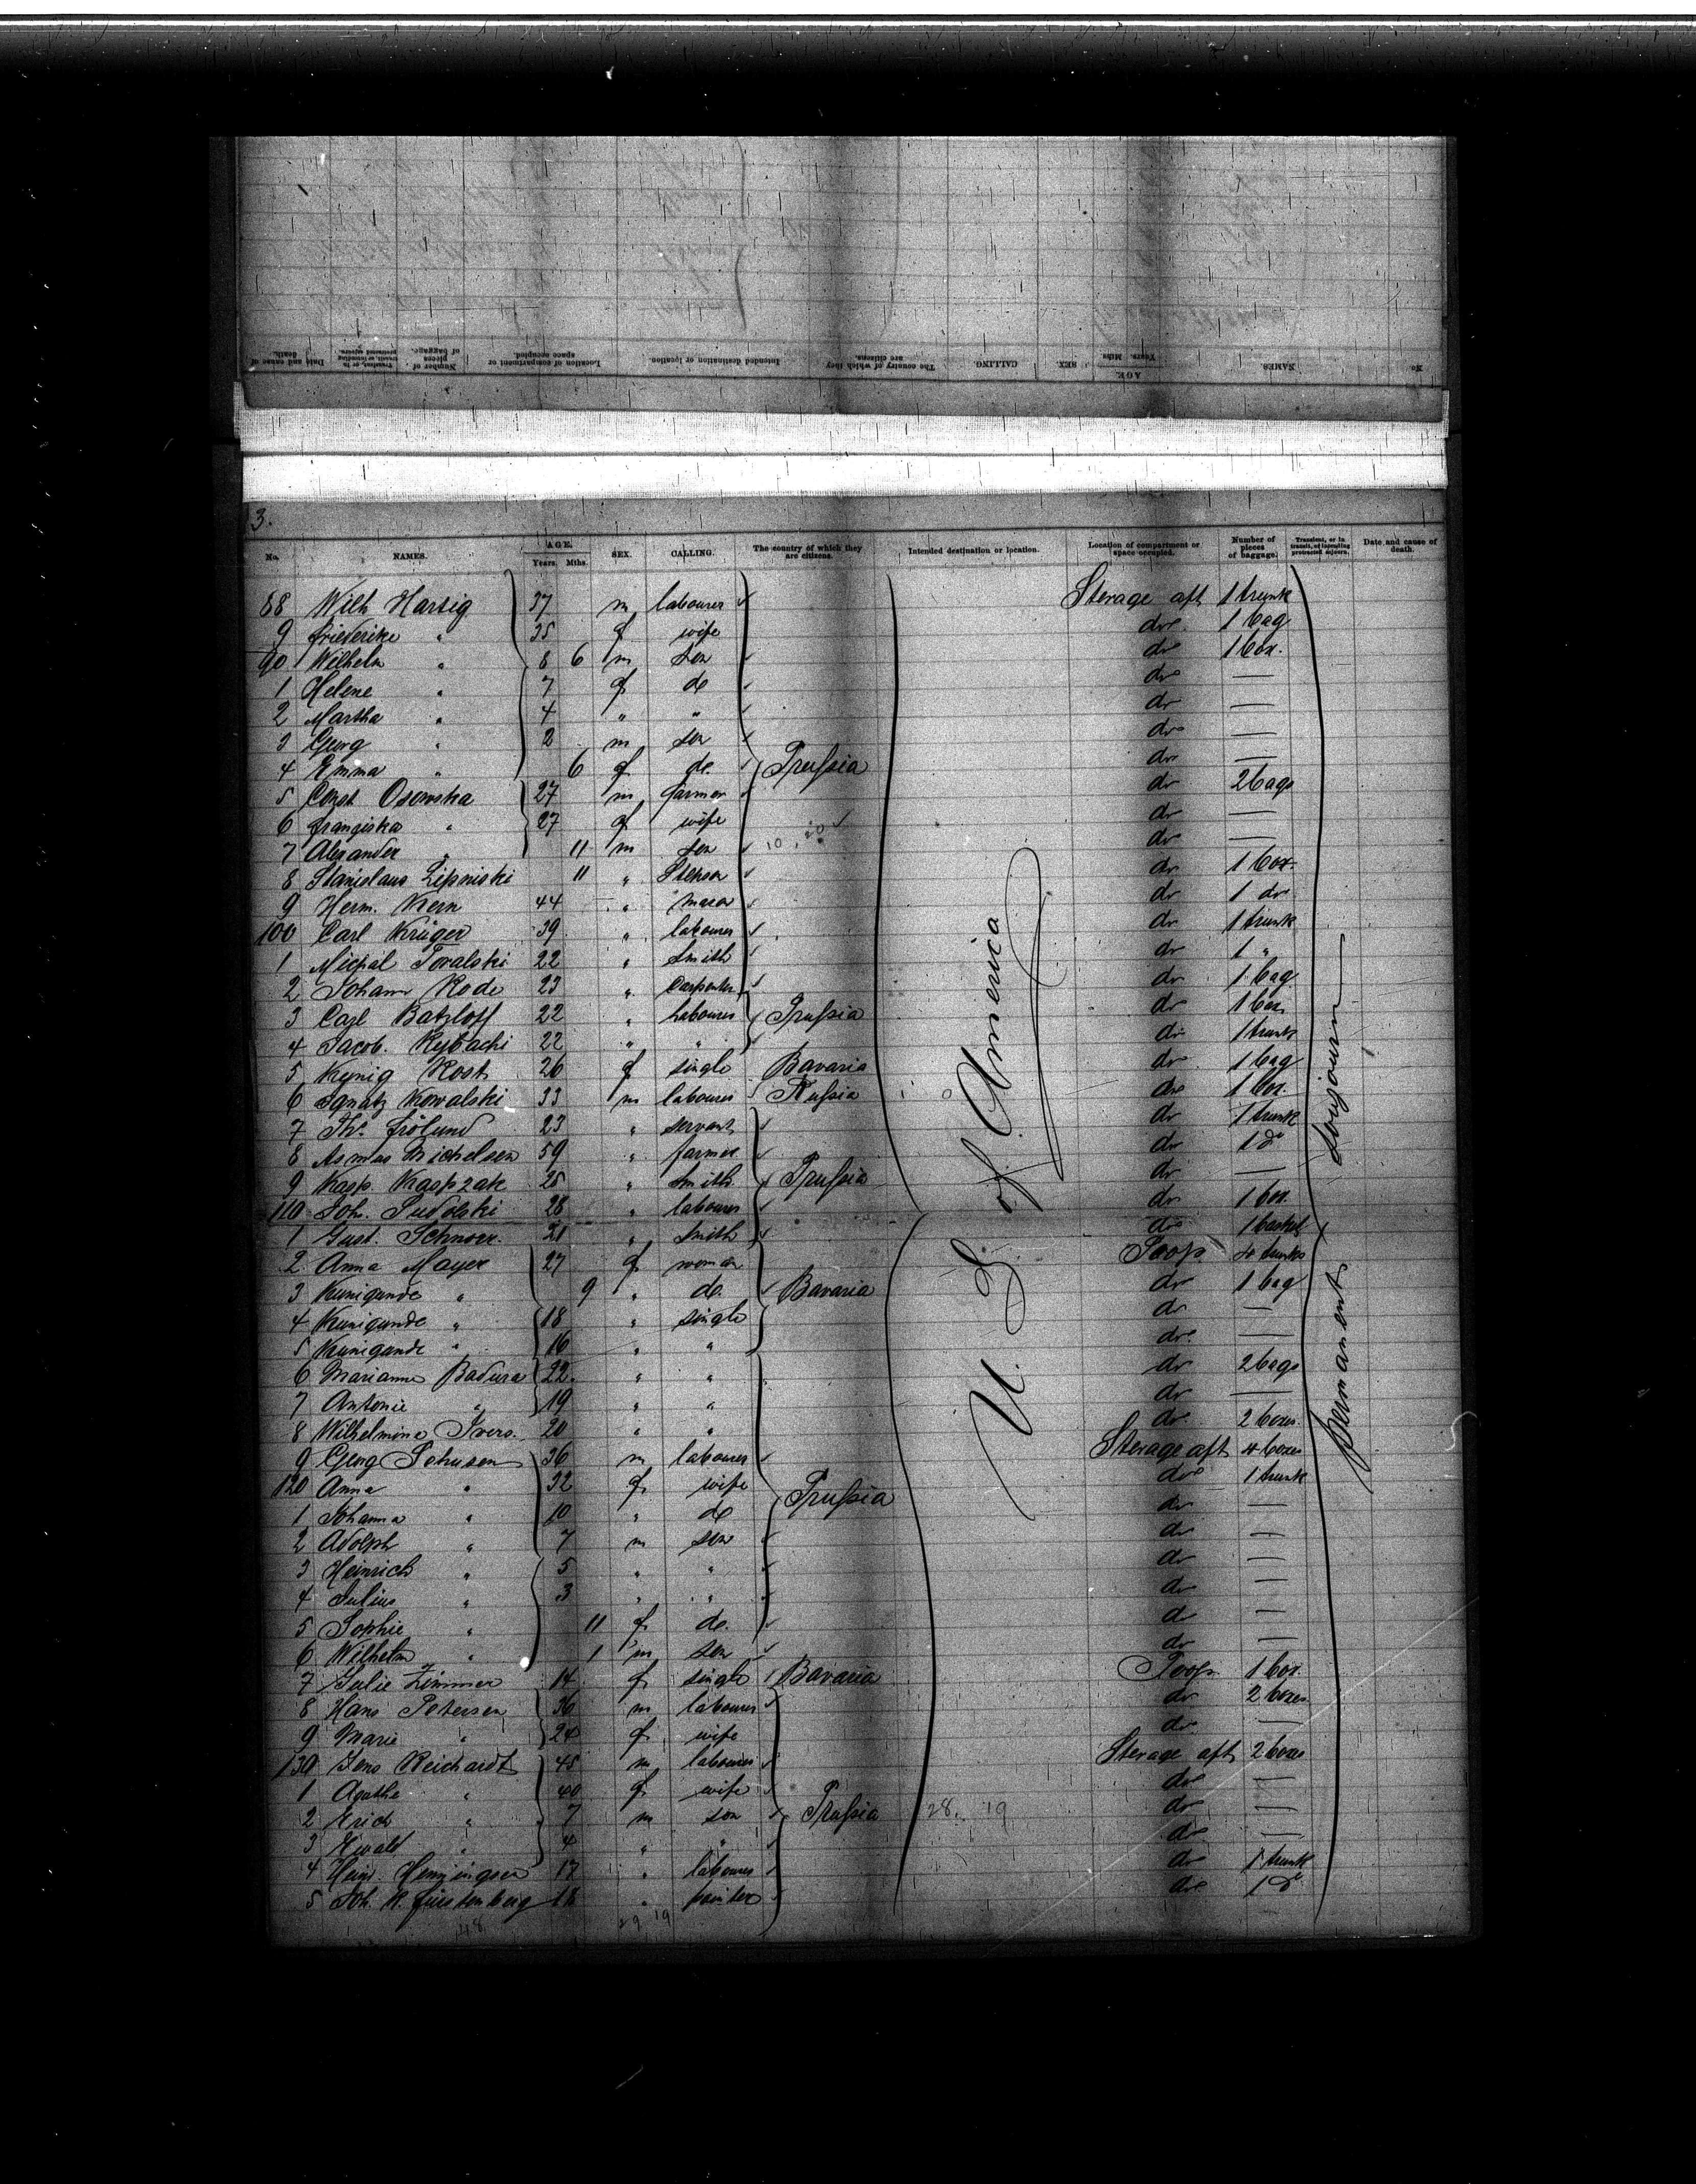 Date and cause of death.
Transient, or in transit, or intending protracted sojourn.
Number of pieces of baggage.
Location of compartment or space occupied.
Intended destination or location.
The country of which they are citizens.
CALLING
SEX.
AGE.
Years. Mths
NAMES.
No
3.
No. NAMES. AGE. Years. Mths. SEX. CALLING. The country of which they are citizens. Intended destination or location. Location of compartment or space occupied. Number of pieces of baggage. Transient, or in transit, or intending protracted sojourn. Date and cause of death.
88 Wilh Hartig 37 m labourer Sterage aft 1 trunk
9 Friederike " 35 f wife do 1 bag
90 Wilhelm " 8 6 m son do 1 box.
1 Helene " 7 f do do —
2 Martha " 4 " " do —
3 Georg " 2 m son do —
4 Emma " 6 f do. Prussia do —
5 Const Osowska 27 m farmer do 2 bags
6 Franziska " 27 f wife do —
7 Alexander " 11 m son do —
8 Stanislaus 11 " do 1 box.
9 Herm. Kern 44 " mason do 1 do
100 Carl Krüger 39 " labourer do 1 trunk
1 22 " Smith do 1 "
2 Johann Rode 23 " Carpenter do 1 bag
3 Carl Batzloff 22 " Labourer Prussia do 1 box
4 Jacob. Rybachi 22 " " do 1 trunk
5 Rost 26 f single Bavaria do 1 bag
6 Ignatz Kowalski 33 m labourer Russia do 1 box.
7 Frölund 23 " servant do 1 trunk
8 Asmus Michelsen 59 " farmer do 1 do
9 Kasp. Kaspzak 25 " Smith Prussia do —
110 Joh. Pudolski 28 " labourer do 1 box
1 Gust. Schnoer. 21 " Smith do 1 basket
2 Anna Mayer 27 f woman Poop 4 trunks
3 Kunigunde " 9 " do. Bavaria do 1 bag
4 Kunigunde " 18 " single do —
5 Kunigunde " 16 " " do. —
6 Marianne Badura 22. " " do 2 bags
7 Antonie " 19 " " do —
8 Wilhelmina Ivers. 20 " " do 2 boxes.
9 Georg Johnsen 36 m labourer Sterage aft 4 boxes
120 Anna " 32 f wife Prussia do 1 trunk
1 Johanna " 10 " do do —
2 Adolph " 7 m son do —
3 Heinrich " 5 " " do —
4 Julius " 3 " " do —
5 Sophie " 11 f do. do —
6 Wilhelm " 1 m son do —
7 Julie Zimmer 14 f single Bavaria Poop 1 box.
8 Hans Petersen 36 m labourer do 2 boxes.
9 Marie " 24 f wife do —
130 Jens Reichardt 45 m labourer Sterage aft 2 boxes
1 Agathe " 40 f wife do —
2 Erich " 7 m son Prussia 28. 19 do —
3 Ewald " 4 " " do —
4 Heinr. Henningsen 17 " labourer do 1 trunk
5 Joh. H. Fürstenberg 18 " painter do 1 do
U. S. of America
permanent sojourn
48 29 19